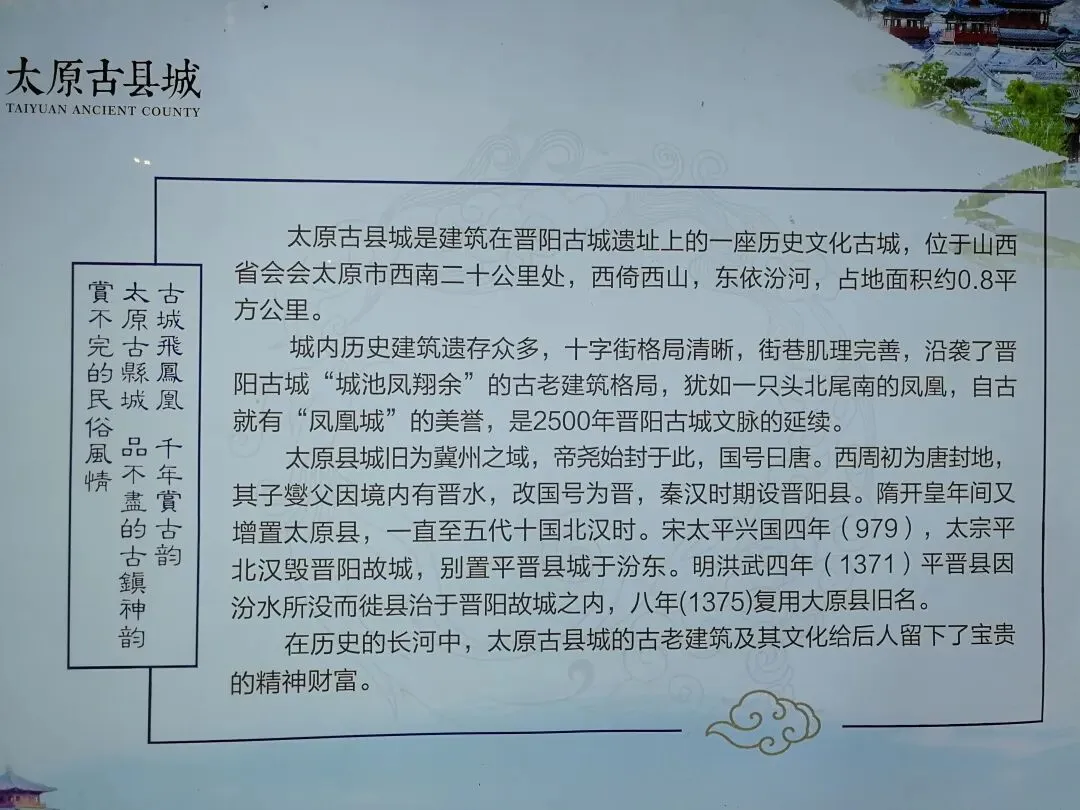 太原古县城
TAIYUAN ANCIENT COUNTY
古城飛鳳凰 千年賞古韵
太原古縣城 品不盡的古鎮神韵
賞不完的民俗風情
太原古县城是建筑在晋阳古城遗址上的一座历史文化古城，位于山西
省会会太原市西南二十公里处，西倚西山，东依汾河，占地面积约0.8平
方公里。
城内历史建筑遗存众多，十字街格局清晰，街巷肌理完善，沿袭了晋
阳古城“城池凤翔余”的古老建筑格局，犹如一只头北尾南的凤凰，自古
就有“凤凰城”的美誉，是2500年晋阳古城文脉的延续。
太原县城旧为冀州之域，帝尧始封于此，国号曰唐。西周初为唐封地，
其子燮父因境内有晋水，改国号为晋，秦汉时期设晋阳县。隋开皇年间又
增置太原县，一直至五代十国北汉时。宋太平兴国四年（979），太宗平
北汉毁晋阳故城，别置平晋县城于汾东。明洪武四年（1371）平晋县因
汾水所没而徙县治于晋阳故城之内，八年(1375)复用大原县旧名。
在历史的长河中，太原古县城的古老建筑及其文化给后人留下了宝贵
的精神财富。